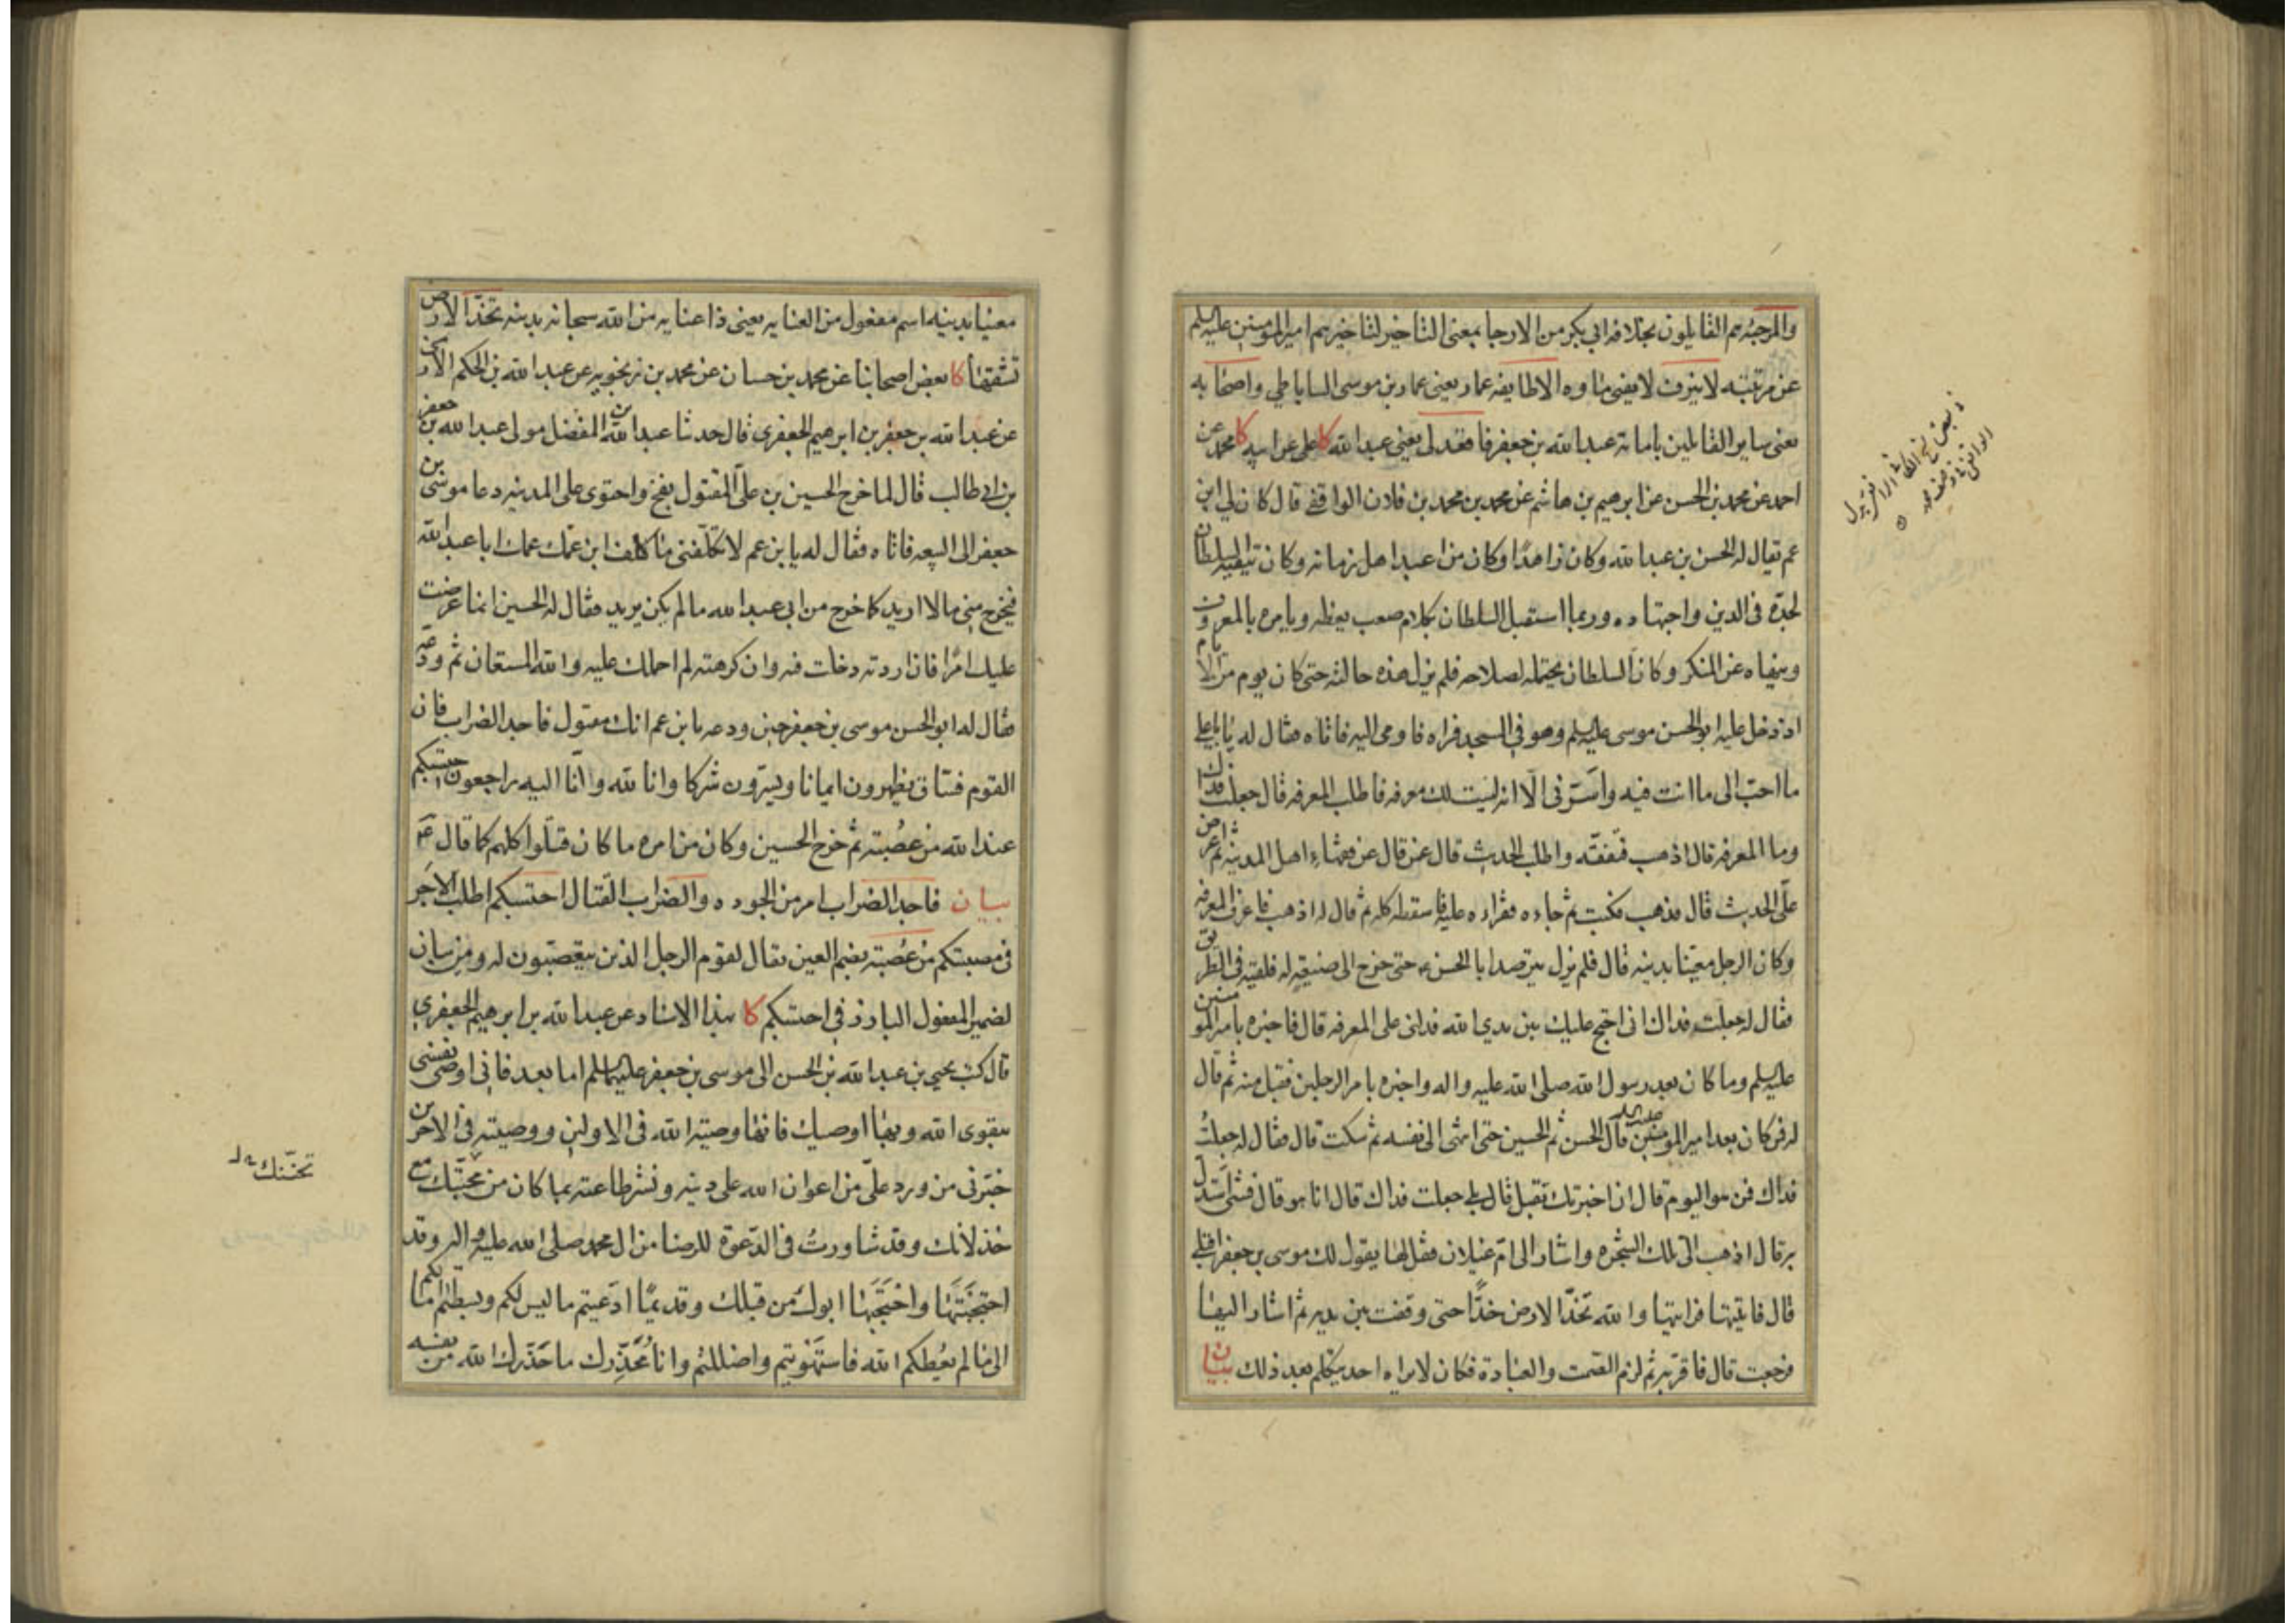 والمرجئه هم القايلون بخلافه ابي بكر من الارجا بمعنى التاخير لتاخيرهم امير المومنين عليه السلم
عن مرتبته لا ينزف لا يفنى ما وه الا طايفه عمار يعني عمار بن موسى الساباطي واصحابه
يعني ساير القايلين بامامة عبد الله بن جعفر فا فقدل يعني عبد الله كا علي عن ابيه كا محمد عن
احمد عن محمد بن الحسن عن ابرهيم بن هاشم عن محمد بن محمد بن فادن الواقفي قال كان لي ابن
عم يقال له الحسن بن عبد الله وكان زاهدا وكان من اعبد اهل زمانه وكان يتقيه السلطان
لجده في الدين واجتهاده وربما استقبل السلطان بكلام صعب يعظه ويامره بالمعروف
وينهاه عن المنكر وكان السلطان يحتمله لصلاحه فلم يزل هذه حالته حتى كان يوم من الايام
اذ دخل عليه ابو الحسن موسى عليه السلم وهو في المسجد فراه فاومى اليه فاتاه فقال له يا با علي
ما احب الى ما انت فيه واسرني الا انه ليست لك معرفه فاطلب المعرفه قال جعلت فداك
وما المعرفه قال اذهب فتفقه واطلب الحديث قال عمن قال عن فقهاء اهل المدينه ثم اعرض
على الحديث قال فذهب فكتب ثم جاءه فقراه عليه فاسقطه كله ثم قال له اذهب فاعرف المعرفه
وكان الرجل معنيا بدينه قال فلم يزل يترصد ابا الحسن ع حتى خرج الى ضيعة له فلقيه في الطريق
فقال له جعلت فداك اني احتج عليك بين يدي الله فدلني على المعرفه قال فاخبره بامير المومنين
عليه السلم وما كان بعد رسول الله صلى الله عليه واله واخبره بامر الرجلين فقبل منه ثم قال
له فمن كان بعد امير المومنين عليه السلم قال الحسن ثم الحسين حتى انتهى الى نفسه ثم سكت قال فقال له جعلت
فداك فمن هو اليوم قال ان اخبرتك تقبل قال بلى جعلت فداك قال انا هو قال فشئ استدل
به قال اذهب الى تلك الشجره واشار الى ام غيلان فقل لها يقول لك موسى بن جعفر اقبلي
قال فاتيتها فرايتها والله تخد الارض خدا حتى وقفت بين يديه ثم اشار اليها
فرجعت قال فاقر به ثم لزم الصمت والعبادة فكان لا يراه احد يتكلم بعد ذلك بيان
معنيا بدينه اسم مفعول من العنايه يعني ذا عنايه من الله سبحانه بدينه تخد الارض
تشقها كا بعض اصحابنا عن محمد بن حسان عن محمد بن زنجويه عن عبد الله بن الحكم الارمني
عن عبد الله بن جعفر بن ابرهيم الجعفري قال حدثنا عبد الله بن المفضل مولى عبد الله بن جعفر
بن ابي طالب قال لما خرج الحسين بن علي المقتول بفخ واحتوى على المدينه دعا موسى بن
جعفر الى البيعه فاتاه فقال له يا بن عم لا تكلفني ما كلف ابن عمك عمك ابا عبد الله
فيخرج مني ما لا اريد كما خرج من ابي عبد الله ما لم يكن يريد فقال له الحسين انما عرضت
عليك امرا فان اردته دخلت فيه وان كرهته لم احملك عليه والله المستعان ثم ودعه
فقال له ابو الحسن موسى بن جعفر حين ودعه يا بن عم انك مقتول فاجد الضراب فان
القوم فساق يظهرون ايمانا ويسترون شركا وانا لله وانا اليه راجعون احتسبكم
عند الله من عصبته ثم خرج الحسين وكان من امره ما كان قتلوا كلهم كما قال ع
بيان فاجد الضراب امر من الجوده والضراب القتال احتسبكم اطلب الاجر
في مصيبتكم من عصبته بضم العين يقال لقوم الرجل الذين يتعصبون له ومن بيان
لضمير المفعول البارز في احتسبكم كا بهذا الاسناد عن عبد الله بن ابرهيم الجعفري
قال كتب يحيى بن عبد الله بن الحسن الى موسى بن جعفر عليهما السلم اما بعد فاني اوصي نفسي
بتقوى الله وبها اوصيك فانها وصية الله في الاولين ووصيته في الاخرين
خبرني من ورد علي من اعوان الله على دينه ونشر طاعته بما كان من محبتك مع
خذلانك وقد شاورت في الدعوة للرضا من ال محمد صلى الله عليه واله وقد
احتجبتها واحتجبها ابوك من قبلك وقديما ادعيتم ما ليس لكم وبسطتم امالكم
الى ما لم يعطكم الله فاستهويتم واضللتم وانا محذرك ما حذرك الله من نفسه
تحننك